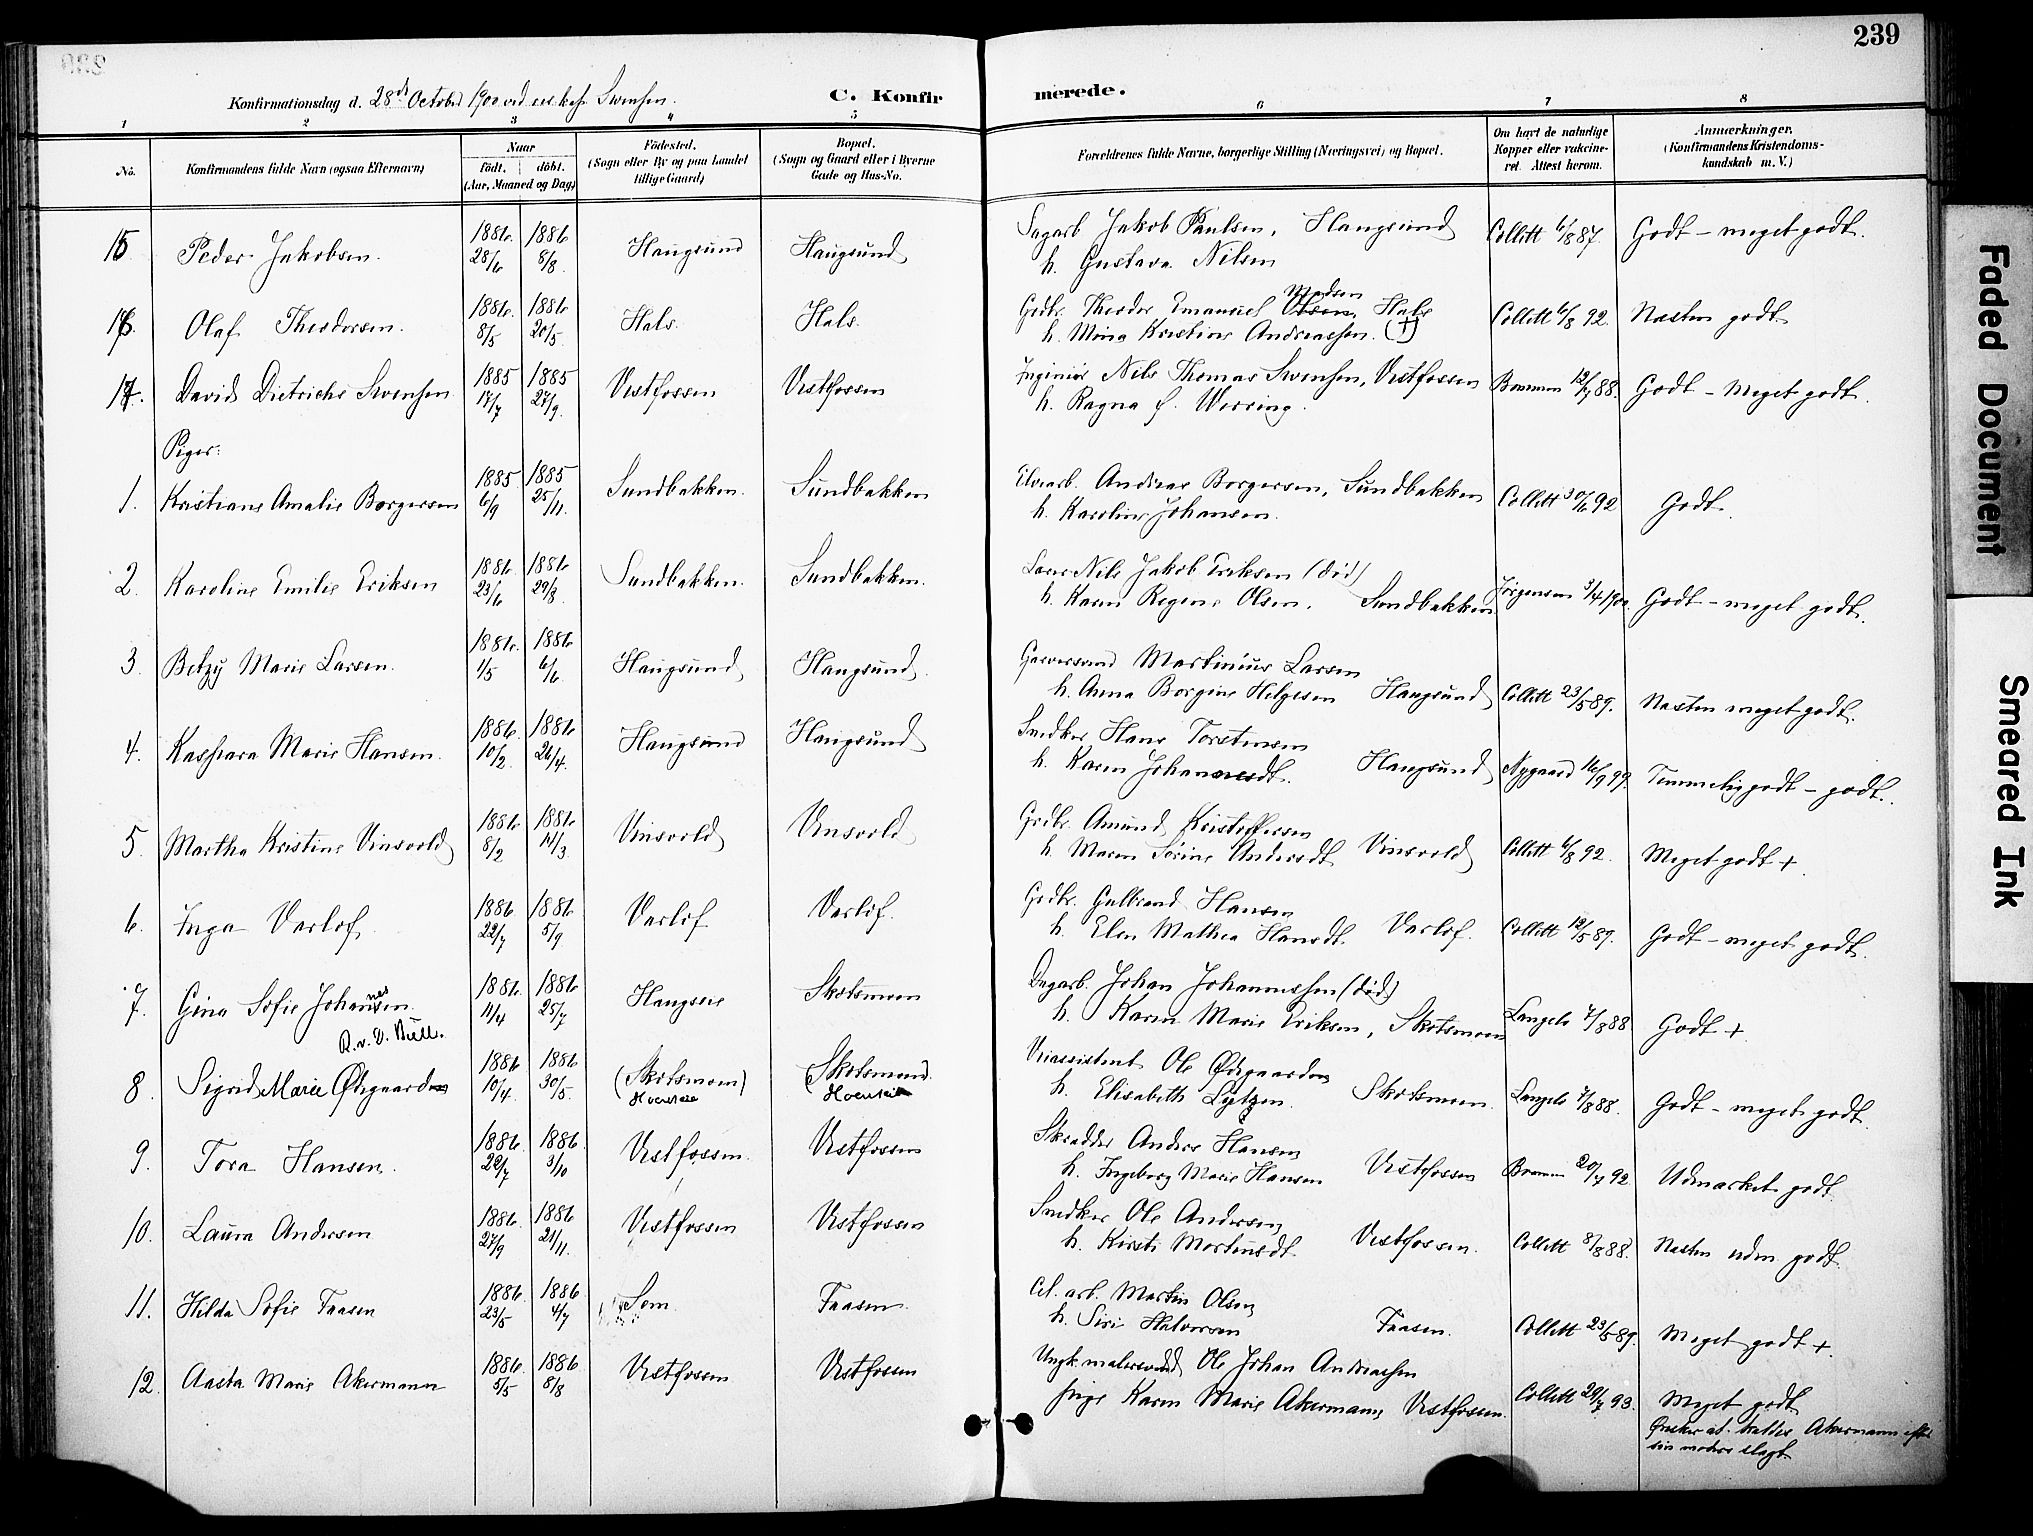 239
Konfirmationsdag d. 28de October 1900 ved res. kap. Swensen.
C. Konfirmerede.
1 2 3 4 5 6 7 8
No.
Konfirmandens fulde Navn (ogsaa Efternavn)
Naar
födt. döbt.
(Aar, Maaned og Dag)
Födested.
(Sogn eller By og paa Landet
tillige Gaard)
Bopæl.
(Sogn og Gaard eller i Byerne
Gade og Hus-No.
Forældrenes fulde Navne, borgerlige Stilling (Næringsvei) og Bopæl.
Om havt de naturlige
Kopper eller vakcine-
ret. Attest herom.
Anmærkninger.
(Konfirmandens Kristendoms-
kundskab m. V.)
15 Peder Jakobsen. 1886 28/6 1886 8/8 Haugsund Haugsund
Sagarb Jakob Paulsen, Haugsund
h. Gustava Nilsen
Collett 6/8 87. Godt - meget godt.
16. Olaf Theodorsen. 1886 8/5 1886 20/5 Hals Hals
Grdbr. Theodor Emanuel Olsen, Madsen Hals
h. Mina Kristine Andreassen. (†)
Collett 6/8 92. Næsten godt
17. David Dietrichs Swensen 1885 17/7 1885 27/9. Vestfossen Vestfossen
Ingeniør Nils Thomas Swensen, Vestfossen
h. Ragna f. Werring.
12/7 88. Godt - Meget godt.
Piger:
1. Kristiane Amalie Borgersen 1885 6/9 1885 25/11. Sundbakken. Sundbakken
Elvearb. Andreas Borgersen, Sundbakken
h. Karoline Johansen.
Collett 30/6 92 Godt.
2. Karoline Emilie Eriksen 1886 23/6 1886 29/8. Sundbakken. Sundbakken.
Nils Jakob Eriksen (død)
h. Karen Regine Olsen. Sundbakken
Jørgensen 3/4 1900 Godt - meget godt.
3. Betzy Marie Larsen. 1886 1/5 1886 6/6. Haugsund Haugsund.
Garversvend Martinius Larsen
h. Anna Borgine Helgesen Haugsund
Collett 23/5 89. Næsten meget godt.
4. Kaspara Marie Hansen. 1886. 10/2. 1886 26/4. Haugsund Haugsund
Snedker Hans Torstensen
h. Karen Johannesdt. Haugsund
Nygaard 16/9 99. Temmelig godt - godt.
5. Martha Kristine Vinsvold 1886 8/2 1886 14/3. Vinsvold Vinsvold
Grdbr. Amund Kristoffersen
h. Maren Sörine Andersdt Vinsvold
Collett 6/8 92. Meget godt +
6. Inga Varlof. 1886 22/7 1886 5/9. Varlof Varlof.
Grdbr. Gulbrand Hansen
h. Elen Mathea Hansdt. Varlof.
Collett 12/5 89. Godt - meget godt.
7. Gina Sofie Johannessen. 1886. 11/4 1886 25/7 Haugseie Skotsmoen
Dagarb. Johan Johannessen (død)
h. Karen Marie Eriksen, Skotsmoen
Langeb 7/8 88 Godt +
R. v. O. Bull.
8. Sigrid Marie Ødegaarden 1886 10/4 1886 30/5. (Skotsmoen) Hoenseie (Skotsmoen). Hoenseie
Veiassistent Ole Ødegaarden
h. Elisabeth Lytzen. Skotsmoen.
Langeb 7/8 88. Godt - meget godt.
9. Tora Hansen. 1886. 22/7 1886. 3/10 Vestfossen. Vestfossen
Skrædder Anders Hansen
h. Ingeborg Marie Hansen Vestfossen
20/7 92. Udmærket godt.
10. Laura Andersen 1886. 27/9 1886 21/11. Vestfossen Vestfossen
Snedker Ole Andersen
h. Kirsti Mortensdt. Vestfossen.
Collett 8/8 88. Næsten udm godt.
11. Hilda Sofie Faasen 1886. 23/5 1886 4/7 Sem. Faasen.
Cel. arb. Martin Olsen
h. Siri Halvorsen Faasen.
Collett 23/5 89. Meget godt +.
12. Aasta Marie Akermann 1886. 5/5 1886 8/8 Vestfossen Vestfossen
Ungk. malersvend Ole Johan Andreassen
pige Karen Marie Akermann Vestfossen.
Collett 29/7 93. Meget godt
Ønsker at kaldes Akermann efter
sin moders slægt.
Faded Document
Smeared Ink